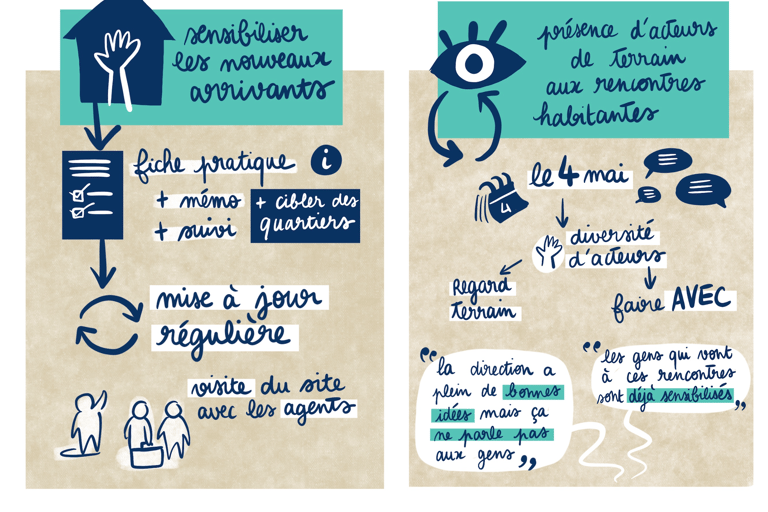 sensibiliser
les nouveaux
arrivants
fiche pratique i
+ mémo
+ suivi
+ cibler des
quartiers
mise à jour
régulière
visite du site
avec les agents
présence d'acteurs
de terrain
aux rencontres
habitantes
le 4 mai
4
diversité
d'acteurs
Regard
terrain
faire AVEC
"la direction a
plein de bonnes
idées mais ça
ne parle pas
aux gens"
"les gens qui vont
à ces rencontres
sont déjà sensibilisés"